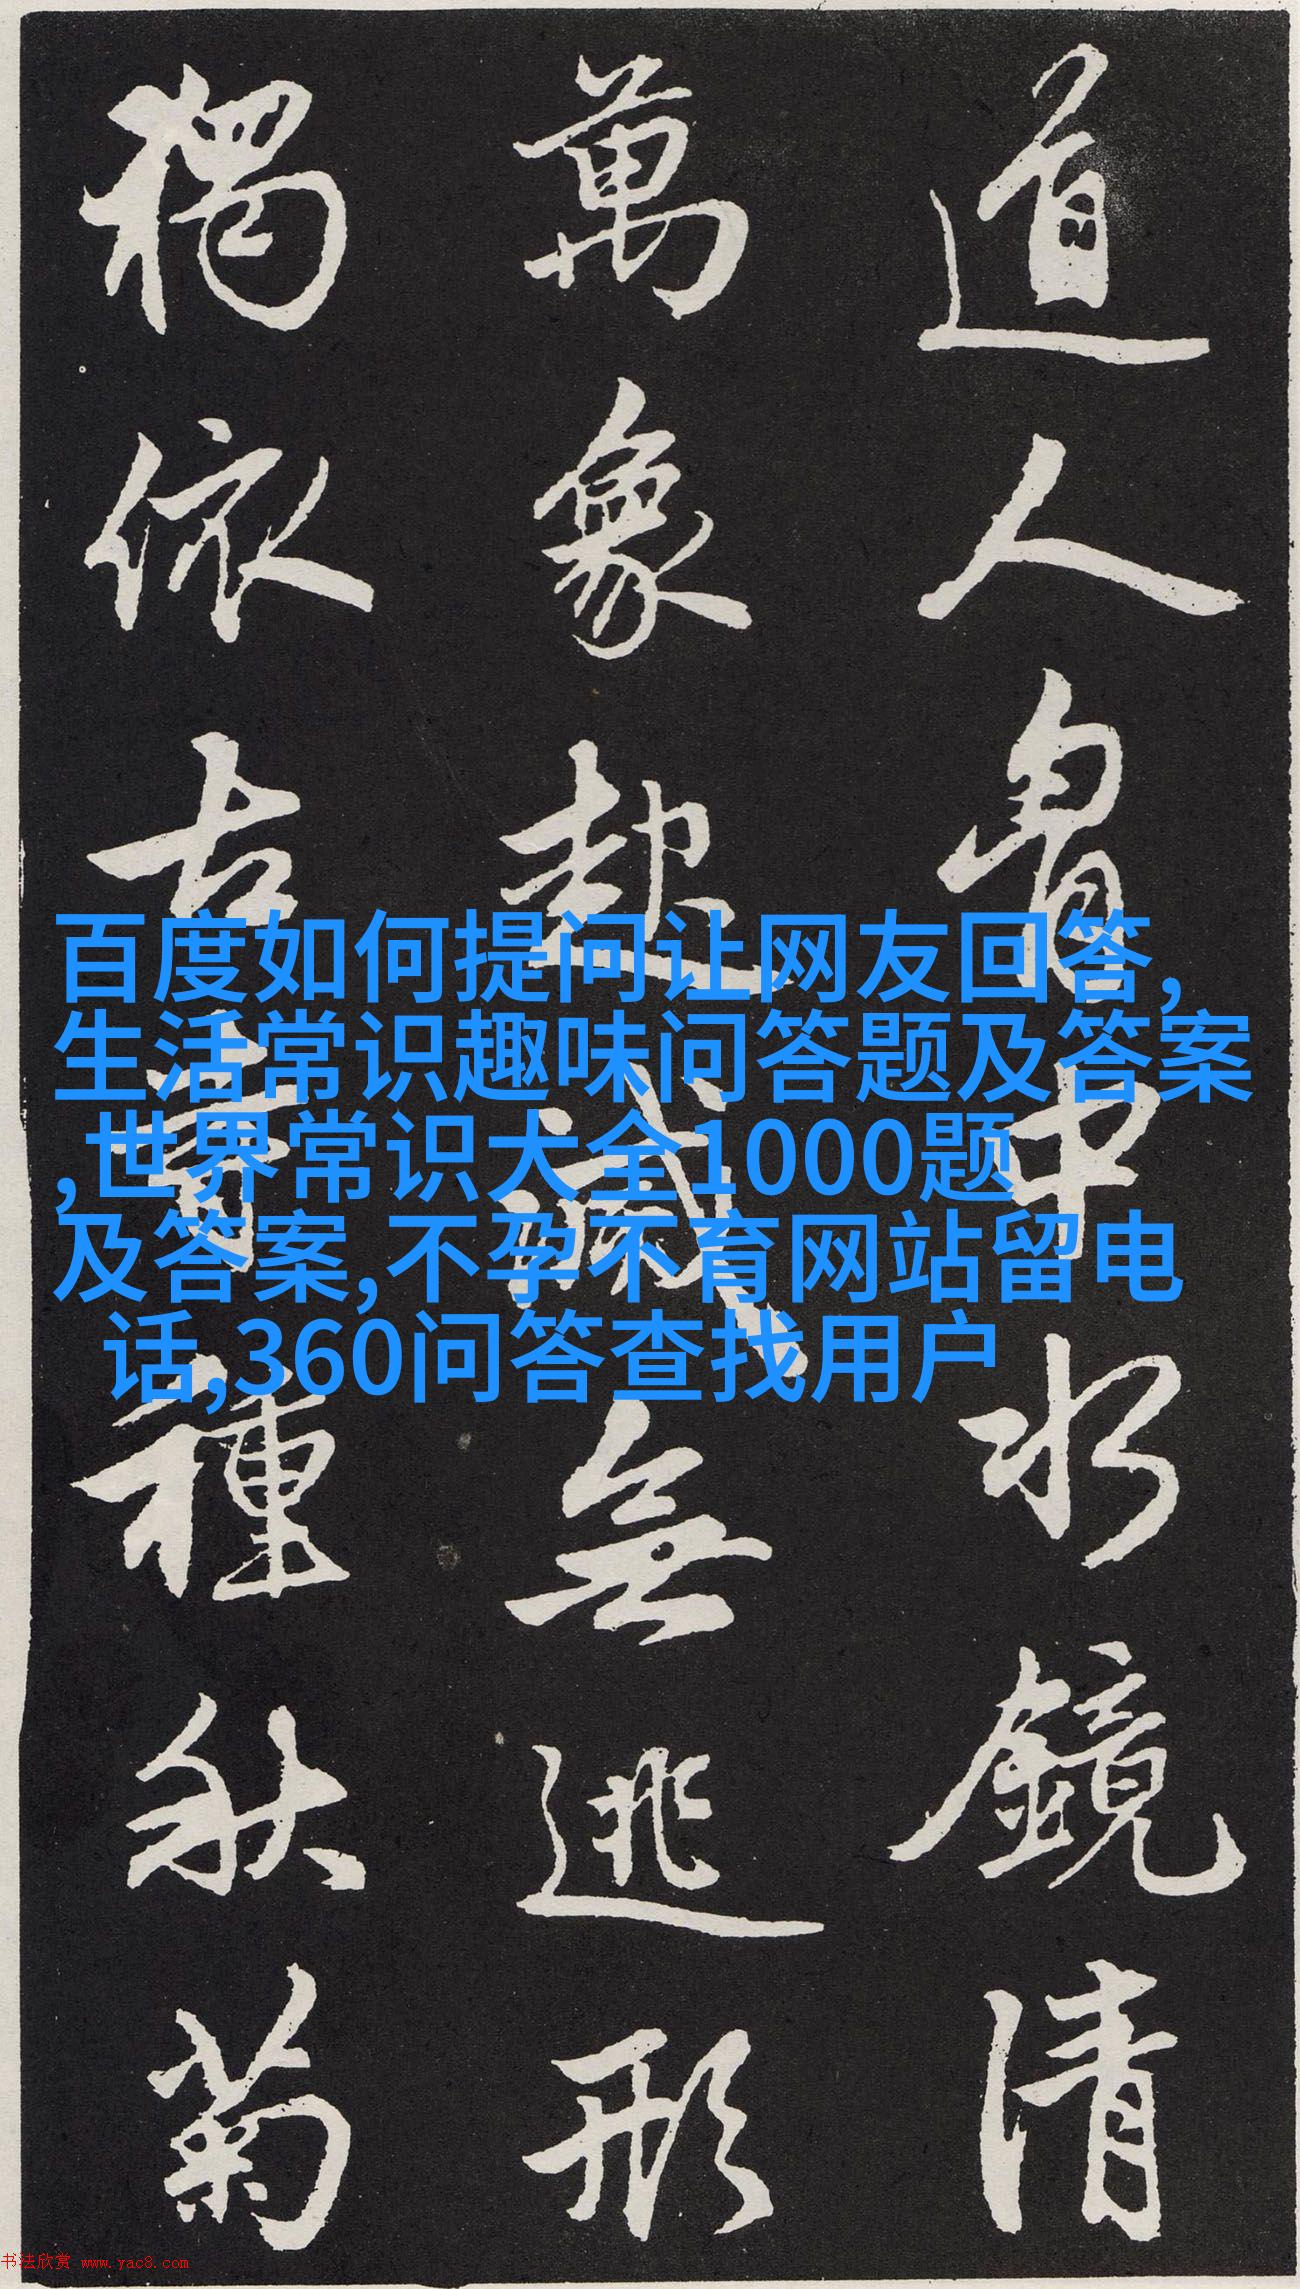 道人胷中水鏡清
萬象起滅無逃形
獨依古寺種秋菊
百度如何提问让网友回答,
生活常识趣味问答题及答案
,世界常识大全1000题
及答案,不孕不育网站留电
话,360问答查找用户
书法欣赏 www.yac8.com